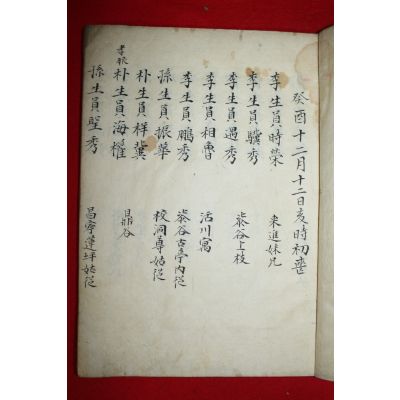 癸酉十二月十二日亥時初喪
李生員時榮 來進妹兄
李生員驥秀
李生員遇秀 柒谷上枝
李生員相魯 活川寓
李生員鵬秀 柒谷古亭內從
孫生員振華 校洞尊姑從
朴生員祥冀
孝根 朴生員海權 鼎谷
孫生員堅秀 昌寧蓮坪姑從